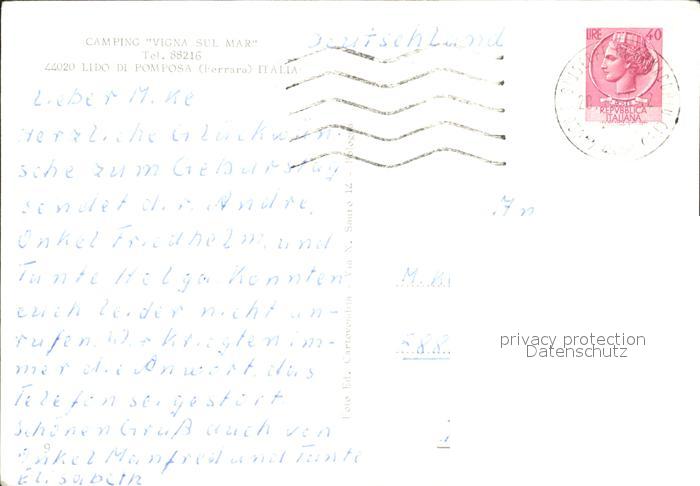 CAMPING "VIGNA SUL MAR"
Tel. 88216
44020 LIDO DI POMPOSA (Ferrara) ITALIA
Deutschland
LIRE 40
REPVBBLICA
ITALIANA
Lieber Mike
Herzliche Glückwün-
sche zum Geburtstag
sendet dir Andre,
Onkel Friedhelm und
Tante Helga. Konnten
euch leider nicht an-
rufen. Wir kriegten im-
mer die Anwort, das
Telefon sei gestört
Schönen Gruß auch von
Onkel Manfred und Tante
Elisabeth
9
Foto Ed. Cartovendita - Via N. Sauro 12
An
M. K
588
privacy protection
Datenschutz